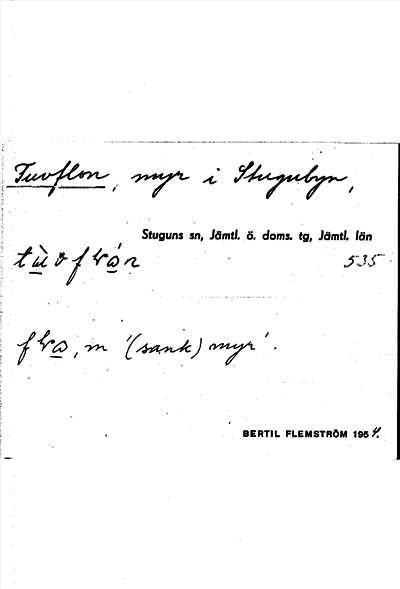 Tuvflon, myr i Stugubyn,
Stuguns sn, Jämtl. ö. doms. tg, Jämtl. län
535
m '(sank) myr'.
BERTIL FLEMSTRÖM 1954.